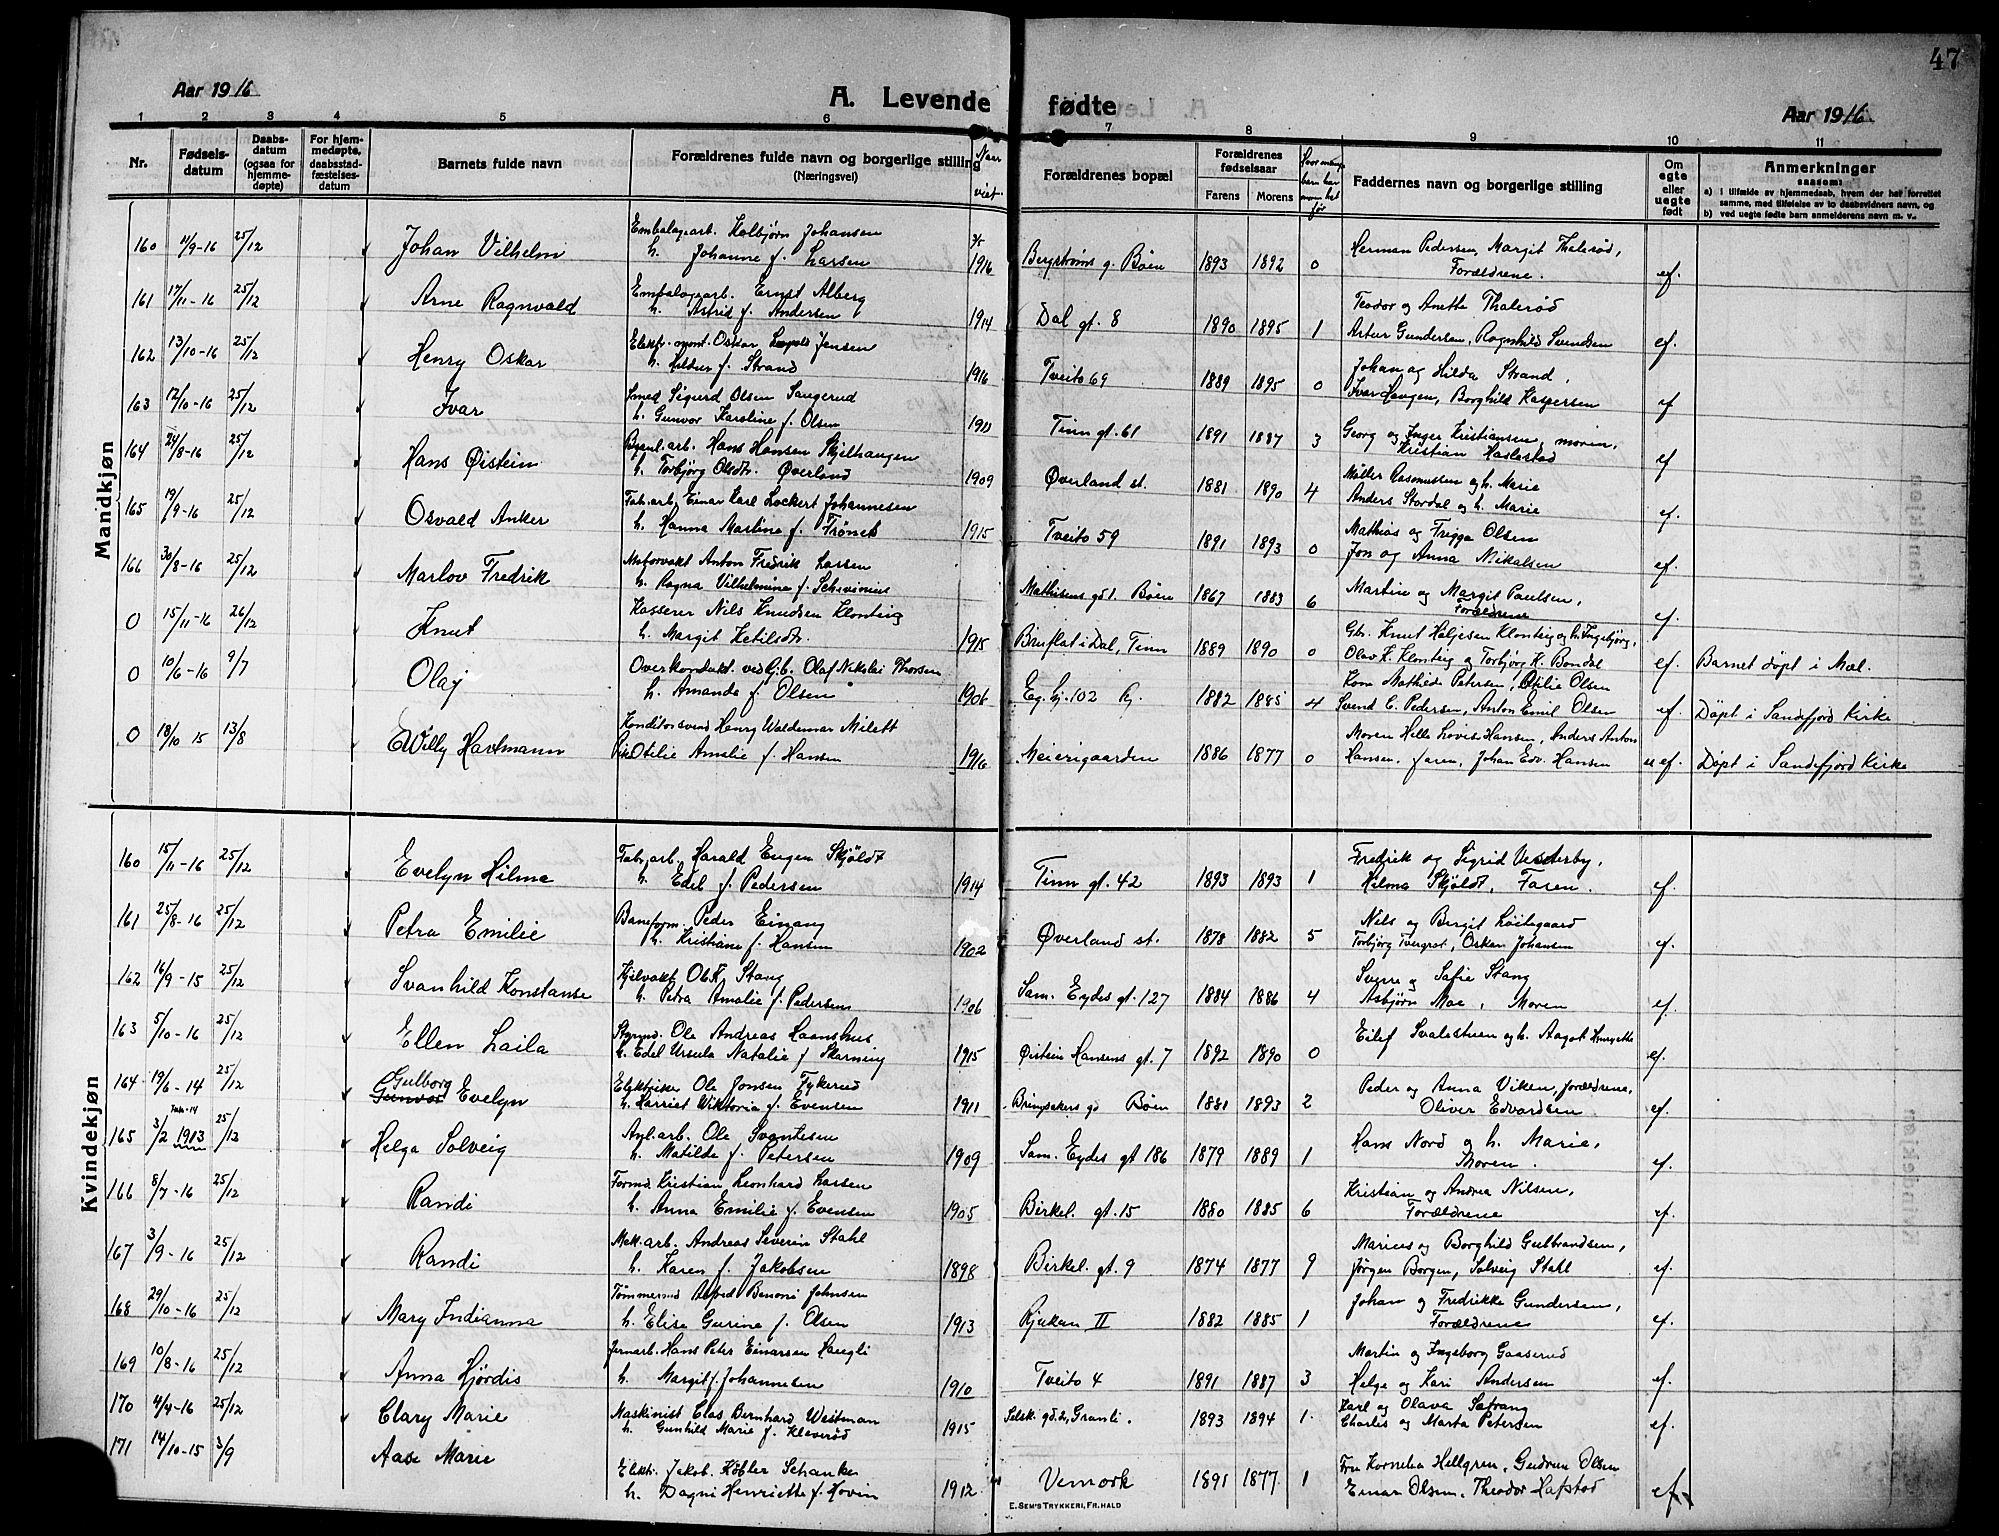 47
Aar 1916
A. Levende fødte
Aar 1916
1 2 3 4 5 6 7 8 9 10 11
Nr.
Fødsels-
datum
Daabs-
datum
(ogsaa for
hjemme-
døpte)
For hjem-
medøpte,
daabsstad-
fæstelses-
datum
Barnets fulde navn
Forældrenes fulde navn og borgerlige stilling
(Næringsvei)
Naar
viet
Forældrenes bopæl
Forældrenes
fødselsaar
Farens Morens
Hvor mange
barn har
mor hat
før
Faddernes navn og borgerlige stilling
Om
egte
eller
uegte
født
Anmerkninger
saasom:
a) i tilfælde av hjemmedaab, hvem der har forrettet
samme, med tilføielse av to daabsvidners navn, og
b) ved uegte fødte barn anmelderens navn m. v.
Mandkjøn
Embalagearb. Kolbjørn Johansen Herman Pedersen, Margit Thalerød,
160 11/9-16 25/12 Johan Vilhelm h. Johanne f. Larsen 1916 Bergstrøms g. Bøen 1893 1892 0 Forældrene. ef.
Embalagearb. Ernst Alberg Teodor og Anette Thalerød
161 17/11-16 25/12 Arne Ragnvald h. Astrid f. Andersen 1914 Dal gt. 8 1890 1895 1 Artur Gundersen, Ragnhild Svendsen ef.
Elektr. mont. Oskar Jensen Johan og Hilda Strand,
162 13/10-16 25/12 Henry Oskar h. f. Strand 1916 Tveito 69 1889 1895 0 Ivar Haugen, Borghild Kaspersen ef
Smed Sigurd Olsen Georg og Inger Kristiansen, moren,
163 12/10-16 25/12 Ivar h. Gunvor Karoline f. Olsen Tinn gt. 61 1891 1887 3 Kristian ef
arb. Hans Hansen Skjelhaugen Møller Rasmussen og h. Marie
164 24/8-16 25/12 Hans Øistein h. Torbjørg Olsdtr. Øverland 1909 Øverland st. 1881 1890 4 Anders Stordal og h. Marie ef.
Fab. arb. Einar Karl Lockert Johannesen Mathias og Frigga Olsen
165 19/9-16 25/12 Osvald Anker h. Hanna Martine f. 1915 Tveito 59 1891 1893 0 Jon og Anna Mikalsen ef.
Motorvakt Anton Fredrik Larsen Martin og Margit Paulsen,
166 30/8-16 25/12 Marlov Fredrik h. Ragna Vilhelmine f. Mathisens gd 1. Bøen 1867 1883 6 Forældrene ef.
Kasserer Nils Knudsen Klonteig Gbr. Knut Heljesen Klonteig og h. Ingebjørg,
0 15/11-16 26/12 Knut h. Margit Ketilsdtr. 1915 Bruflat i Dal, Tinn 1889 1890 0 Olav K. Klonteig og Torbjørg K. Bondal ef. Barnet døpt i Mæl.
Overkondukt. ved Rj.b. Olaf Nikolai Thorsen Kom Mathilde Petersen, Otilie Olsen
0 10/6-16 9/7 Olaf h. Amanda f. Olsen 1906 Eg. hj. 102 Rj. 1882 1885 4 Svend C. Pedersen, Anton Emil Olsen ef. Døpt i Sandefjord Kirke
Konditorsvend Henry Waldemar Milett Moren Helle Lovise Hansen, Anders Anton
0 18/10 15 13/8 Willy Hartmann Pike Otilie Amalie f. Hansen 1916 Meierigaarden 1886 1877 0 Hansen, faren, Johan Edv. Hansen u ef. Døpt i Sandefjord Kirke
Kvindekjøn
Fab. arb. Harald Eugen Skjöldt Fredrik og Sigrid Vesterby,
160 15/11-16 25/12 Evelyn Hilma h. Edel f. Pedersen 1914 Tinn gt. 42 1893 1893 1 Hilma Skjöldt, Faren. ef.
Baneform. Peder Einang Nils og Bergit Løitegaard
161 25/8-16 25/12 Petra Emilie h. Kristiane f. Hansen 1902 Øverland st. 1878 1882 5 Torbjørg Tvergrot, Oskar Johansen ef.
Kjelvakt Stang Sverre og Sofie Stang
162 16/9-15 25/12 Svanhild Konstanse h. Petra Amalie f. Pedersen 1906 Sam. Eydes gt. 127 1884 1886 4 Asbjørn Moe, Moren ef.
Ole Andreas Haanshus Eilef Svalestuen og h. Aagot Henriette
163 5/10-16 25/12 Ellen Laila h. Edel Ursula Natalie f Skarning 1915 Øistein Hansens gt. 7 1892 1890 0 ef.
Gulborg Elektriker Ole Jonsen Fykerud Peder og Anna Viken, forældrene,
164 19/6-14 25/12 Gunvor Evelyn h. Harriet Wiktoria f. Evensen 1911 Bringsakers gd Bøen 1881 1893 2 Oliver Edvardsen ef.
Anl. arb. Ole Svantesen Hans Nord og h. Marie,
165 3/2 1913 25/12 Helga Solveig h. Matilde f. Petersen 1909 Sam. Eydes gt 186 1879 1889 1 Moren. ef.
Formd. Kristian Leonhard Larsen Kristian og Andrea Nilsen,
166 8/7-16 25/12 Randi h. Anna Emilie f. Evensen 1905 Birkel. gt. 15 1880 1885 6 Forældrene ef.
Mek. arb. Andreas Severin Stahl Marius og Borghild Gulbrandsen,
167 3/9-16 25/12 Randi h. Karen f. Jakobsen 1898 Birkel. gt. 9 1874 1877 9 Jørgen Borgen, Solveig Stahl ef.
Tømmermd Alfred Benoni Johnsen Johan og Fredrikke Gundersen,
168 29/10-16 25/12 Mary Indianna h. Elise Gurine f. Olsen 1913 Rjukan II 1882 1885 1 Forældrene ef.
Jernarb. Hans Peter Einarsen Haugli Martin og Ingeborg Gaaserud
169 10/8-16 25/12 Anna Hjørdis h. Margit f. Johannesen 1910 Tveito 4 1891 1887 3 Helge og Kari Andersen ef.
Maskinist Clas Bernhard Westman Karl og Olava Sotrang
170 4/4-16 25/12 Clary Marie h. Gunhild Marie f. Kleverød 1915 Selsk. gd. 2, Granli. 1893 1894 1 Charles og Marta Petersen ef.
171 14/10-15 3/9 Aase Marie Elektr. Jakob Købler Schanke Fru Kornelia Hellgren, Gudrun Olsen
h. Dagni Henriette f. Hovin 1912 Vemork 1891 1877 1 Einar Olsen, Theodor Hafstad ef.
E. SEM'S TRYKKERI, FR.HALD